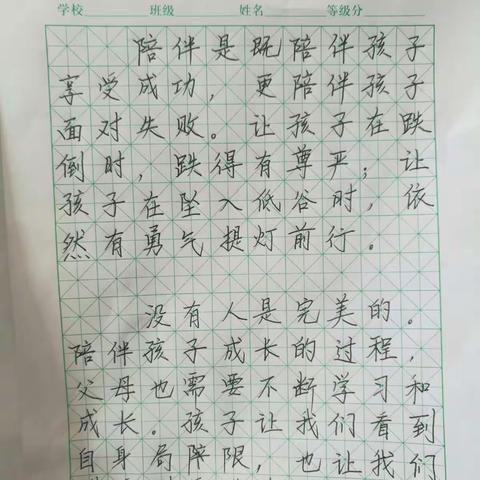 学校 班级 姓名 等级分
陪伴是既陪伴孩子
享受成功，更陪伴孩子
面对失败。让孩子在跌
倒时，跌得有尊严；让
孩子在坠入低谷时，依
然有勇气提灯前行。
没有人是完美的。
陪伴孩子成长的过程，
父母也需要不断学习和
成长。孩子让我们看到
自身局限，也让我们